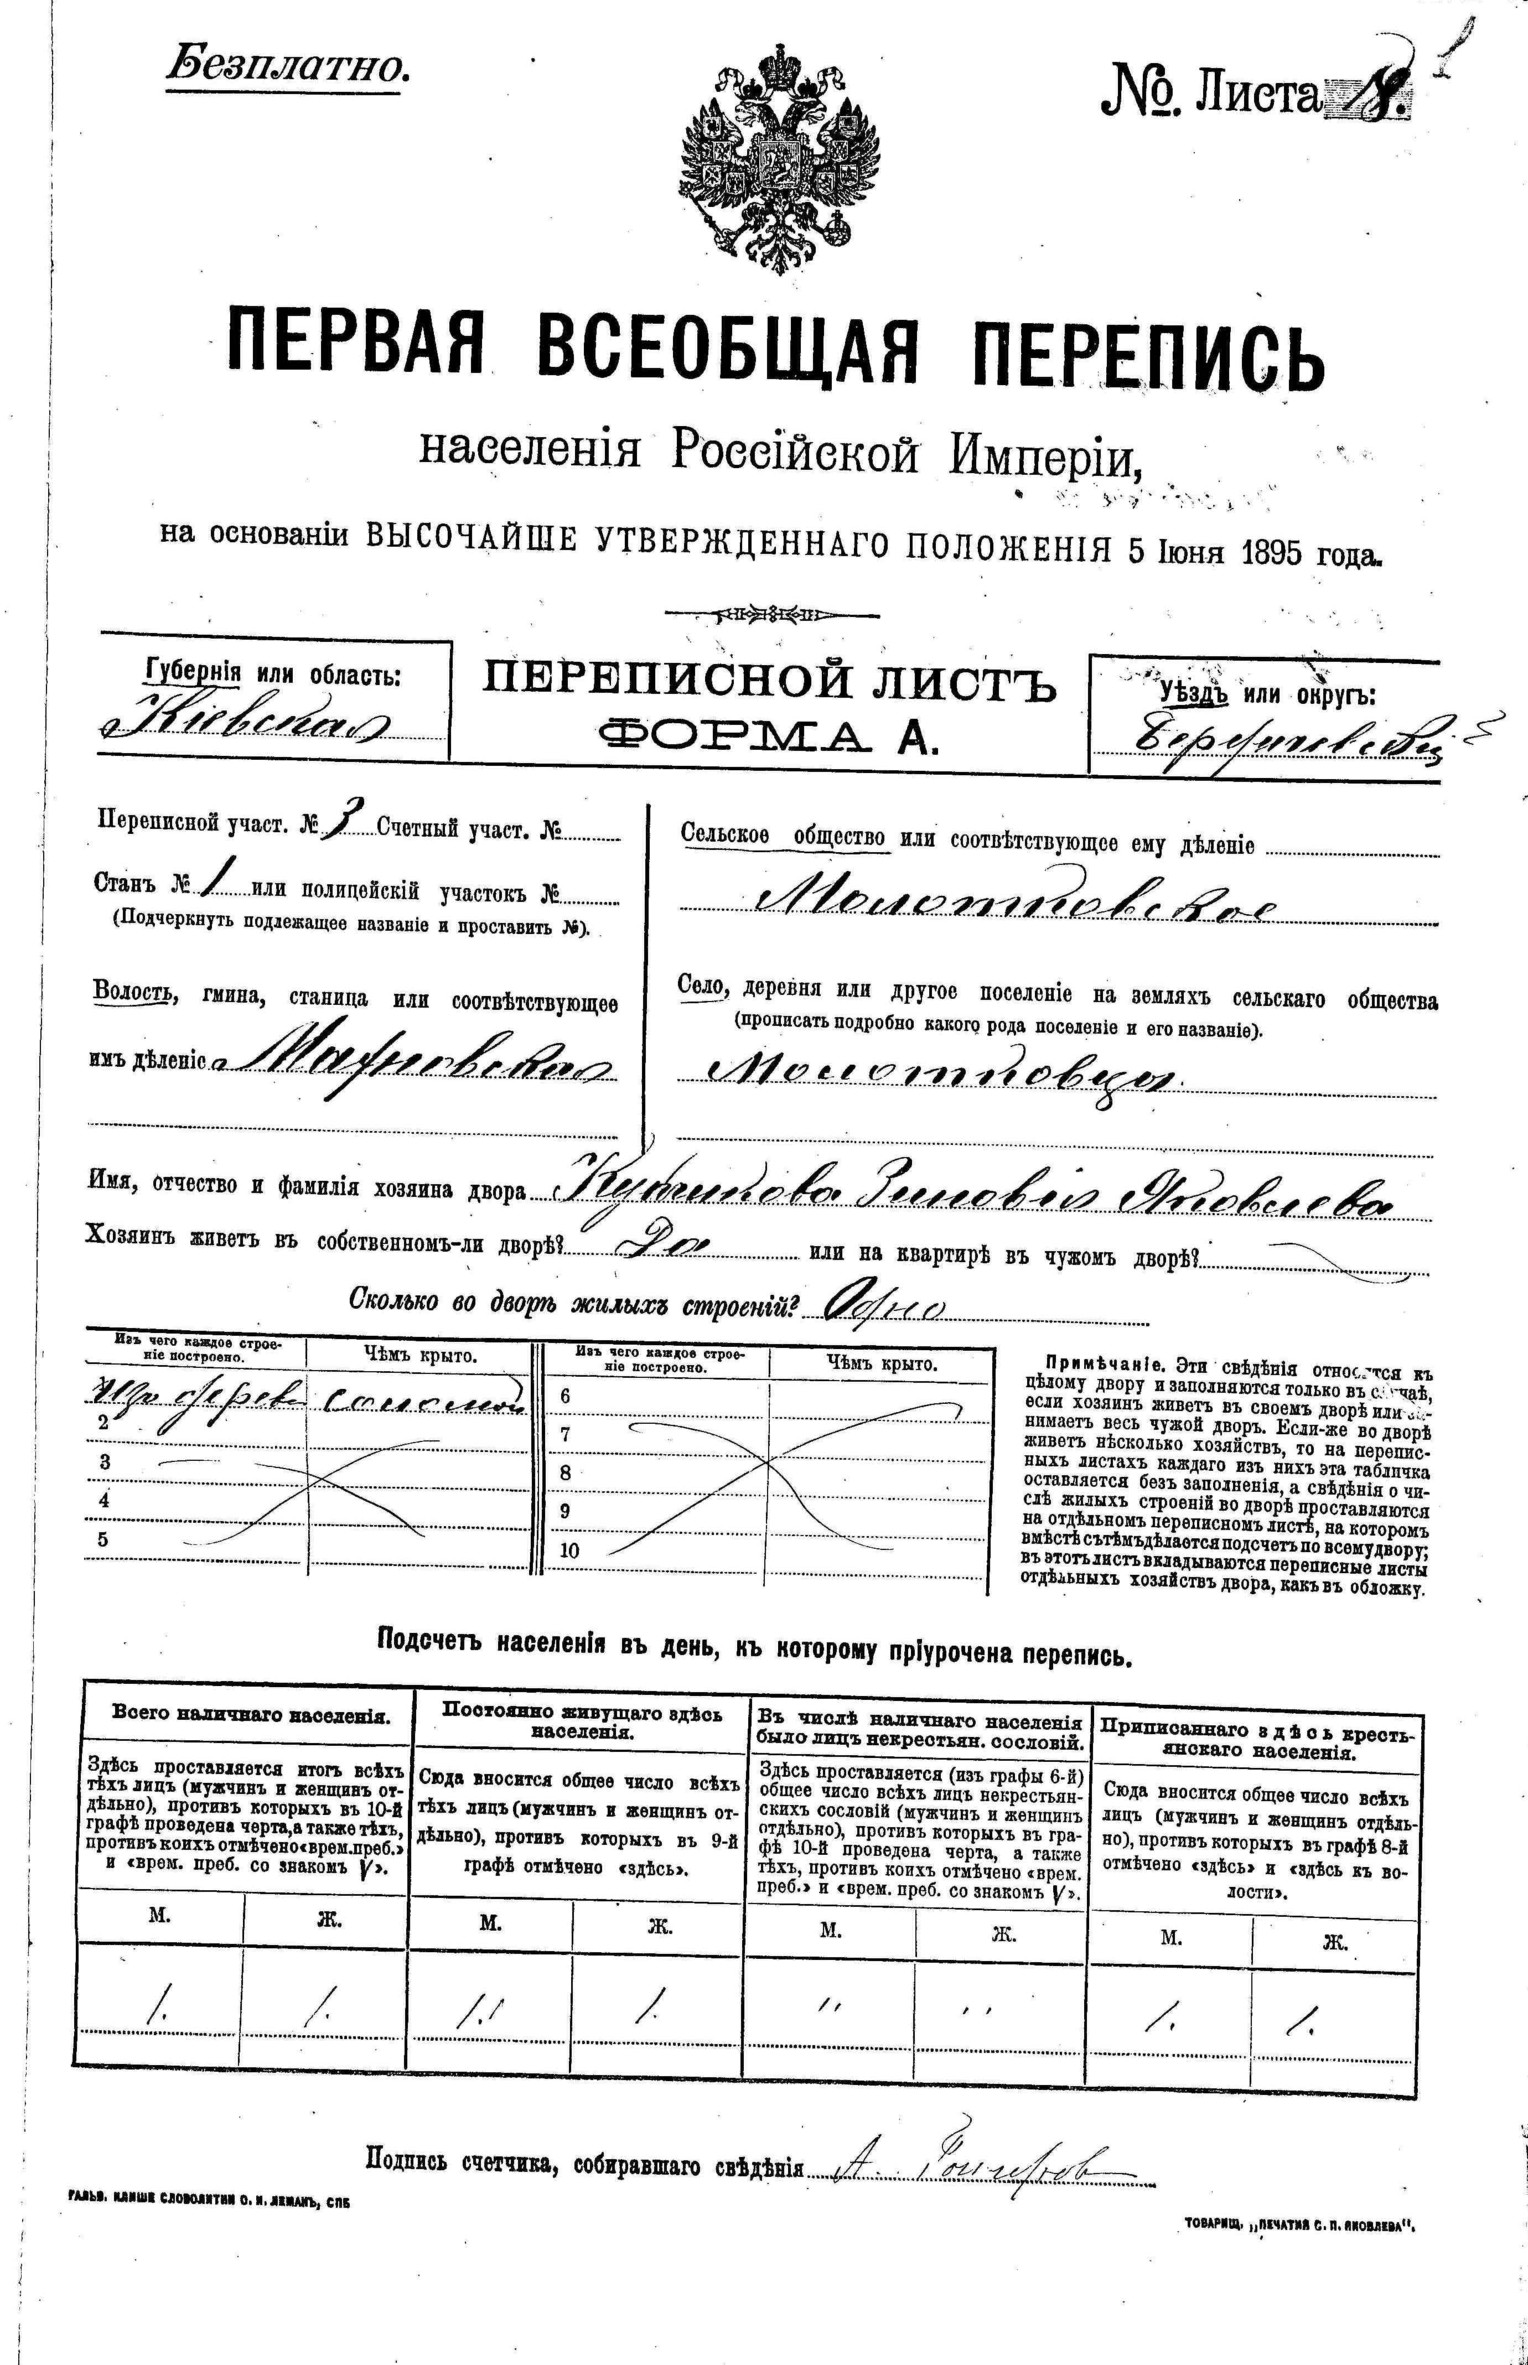 Безплатно.
№. Листа
1
ПЕРВАЯ ВСЕОБЩАЯ ПЕРЕПИСЬ
населенія Россійской Имперіи,
на основаніи ВЫСОЧАЙШЕ УТВЕРЖДЕННАГО ПОЛОЖЕНІЯ 5 Іюня 1895 года.
Губернія или область:
Кіевская
ПЕРЕПИСНОЙ ЛИСТЪ
ФОРМА А.
Уѣздъ или округъ:
Бердичевскій
Переписной участ. № 3 Счетный участ. №
Станъ № 1 или полицейскій участокъ №
(Подчеркнуть подлежащее названіе и проставить №).
Волость, гмина, станица или соотвѣтствующее
имъ дѣленіе Махновская
Сельское общество или соотвѣтствующее ему дѣленіе
Молотковское
Село, деревня или другое поселеніе на земляхъ сельскаго общества
(прописать подробно какого рода поселеніе и его названіе).
Молотковцы
Имя, отчество и фамилія хозяина двора Зиновія Яковлева
Хозяинъ живетъ въ собственномъ-ли дворѣ? Да или на квартирѣ въ чужомъ дворѣ?
Сколько во дворѣ жилыхъ строеній? Одно
Изъ чего каждое строе-
ніе построено.
Чѣмъ крыто.
Изъ чего каждое строе-
ніе построено.
Чѣмъ крыто.
Изъ дерева соломой
2
3
4
5
6
7
8
9
10
Примѣчаніе. Эти свѣдѣнія относятся къ
цѣлому двору и заполняются только въ случаѣ,
если хозяинъ живетъ въ своемъ дворѣ или за-
нимаетъ весь чужой дворъ. Если-же во дворѣ
живетъ нѣсколько хозяйствъ, то на перепис-
ныхъ листахъ каждаго изъ нихъ эта табличка
оставляется безъ заполненія, а свѣдѣнія о чи-
слѣ жилыхъ строеній во дворѣ проставляются
на отдѣльномъ переписномъ листѣ, на которомъ
вмѣстѣ съ тѣмъ дѣлается подсчетъ по всему двору;
въ этотъ листъ вкладываются переписные листы
отдѣльныхъ хозяйствъ двора, какъ въ обложку.
Подсчетъ населенія въ день, къ которому пріурочена перепись.
Всего наличнаго населенія.
Здѣсь проставляется итогъ всѣхъ
тѣхъ лицъ (мужчинъ и женщинъ от-
дѣльно), противъ которыхъ въ 10-й
графѣ проведена черта, а также тѣхъ,
противъ коихъ отмѣчено «врем. преб.»
и «врем. преб. со знакомъ V».
Постоянно живущаго здѣсь
населенія.
Сюда вносится общее число всѣхъ
тѣхъ лицъ (мужчинъ и женщинъ от-
дѣльно), противъ которыхъ въ 9-й
графѣ отмѣчено «здѣсь».
Въ числѣ наличнаго населенія
было лицъ некрестьян. сословій.
Здѣсь проставляется (изъ графы 6-й)
общее число всѣхъ лицъ некрестьян-
скихъ сословій (мужчинъ и женщинъ
отдѣльно), противъ которыхъ въ гра-
фѣ 10-й проведена черта, а также
тѣхъ, противъ коихъ отмѣчено «врем.
преб.» и «врем. преб. со знакомъ V».
Приписаннаго здѣсь кресть-
янскаго населенія.
Сюда вносится общее число всѣхъ
лицъ (мужчинъ и женщинъ отдѣль-
но), противъ которыхъ въ графѣ 8-й
отмѣчено «здѣсь» и «здѣсь къ во-
лости».
М. Ж. М. Ж. М. Ж. М. Ж.
1. 1. 1. 1. " " 1. 1.
Подпись счетчика, собиравшаго свѣдѣнія А.
ГАЛЬВ. КЛИШЕ СЛОВОЛИТНИ О. И. ЛЕМАНЪ, СПБ
ТОВАРИЩ. „ПЕЧАТНЯ С. П. ЯКОВЛЕВА".